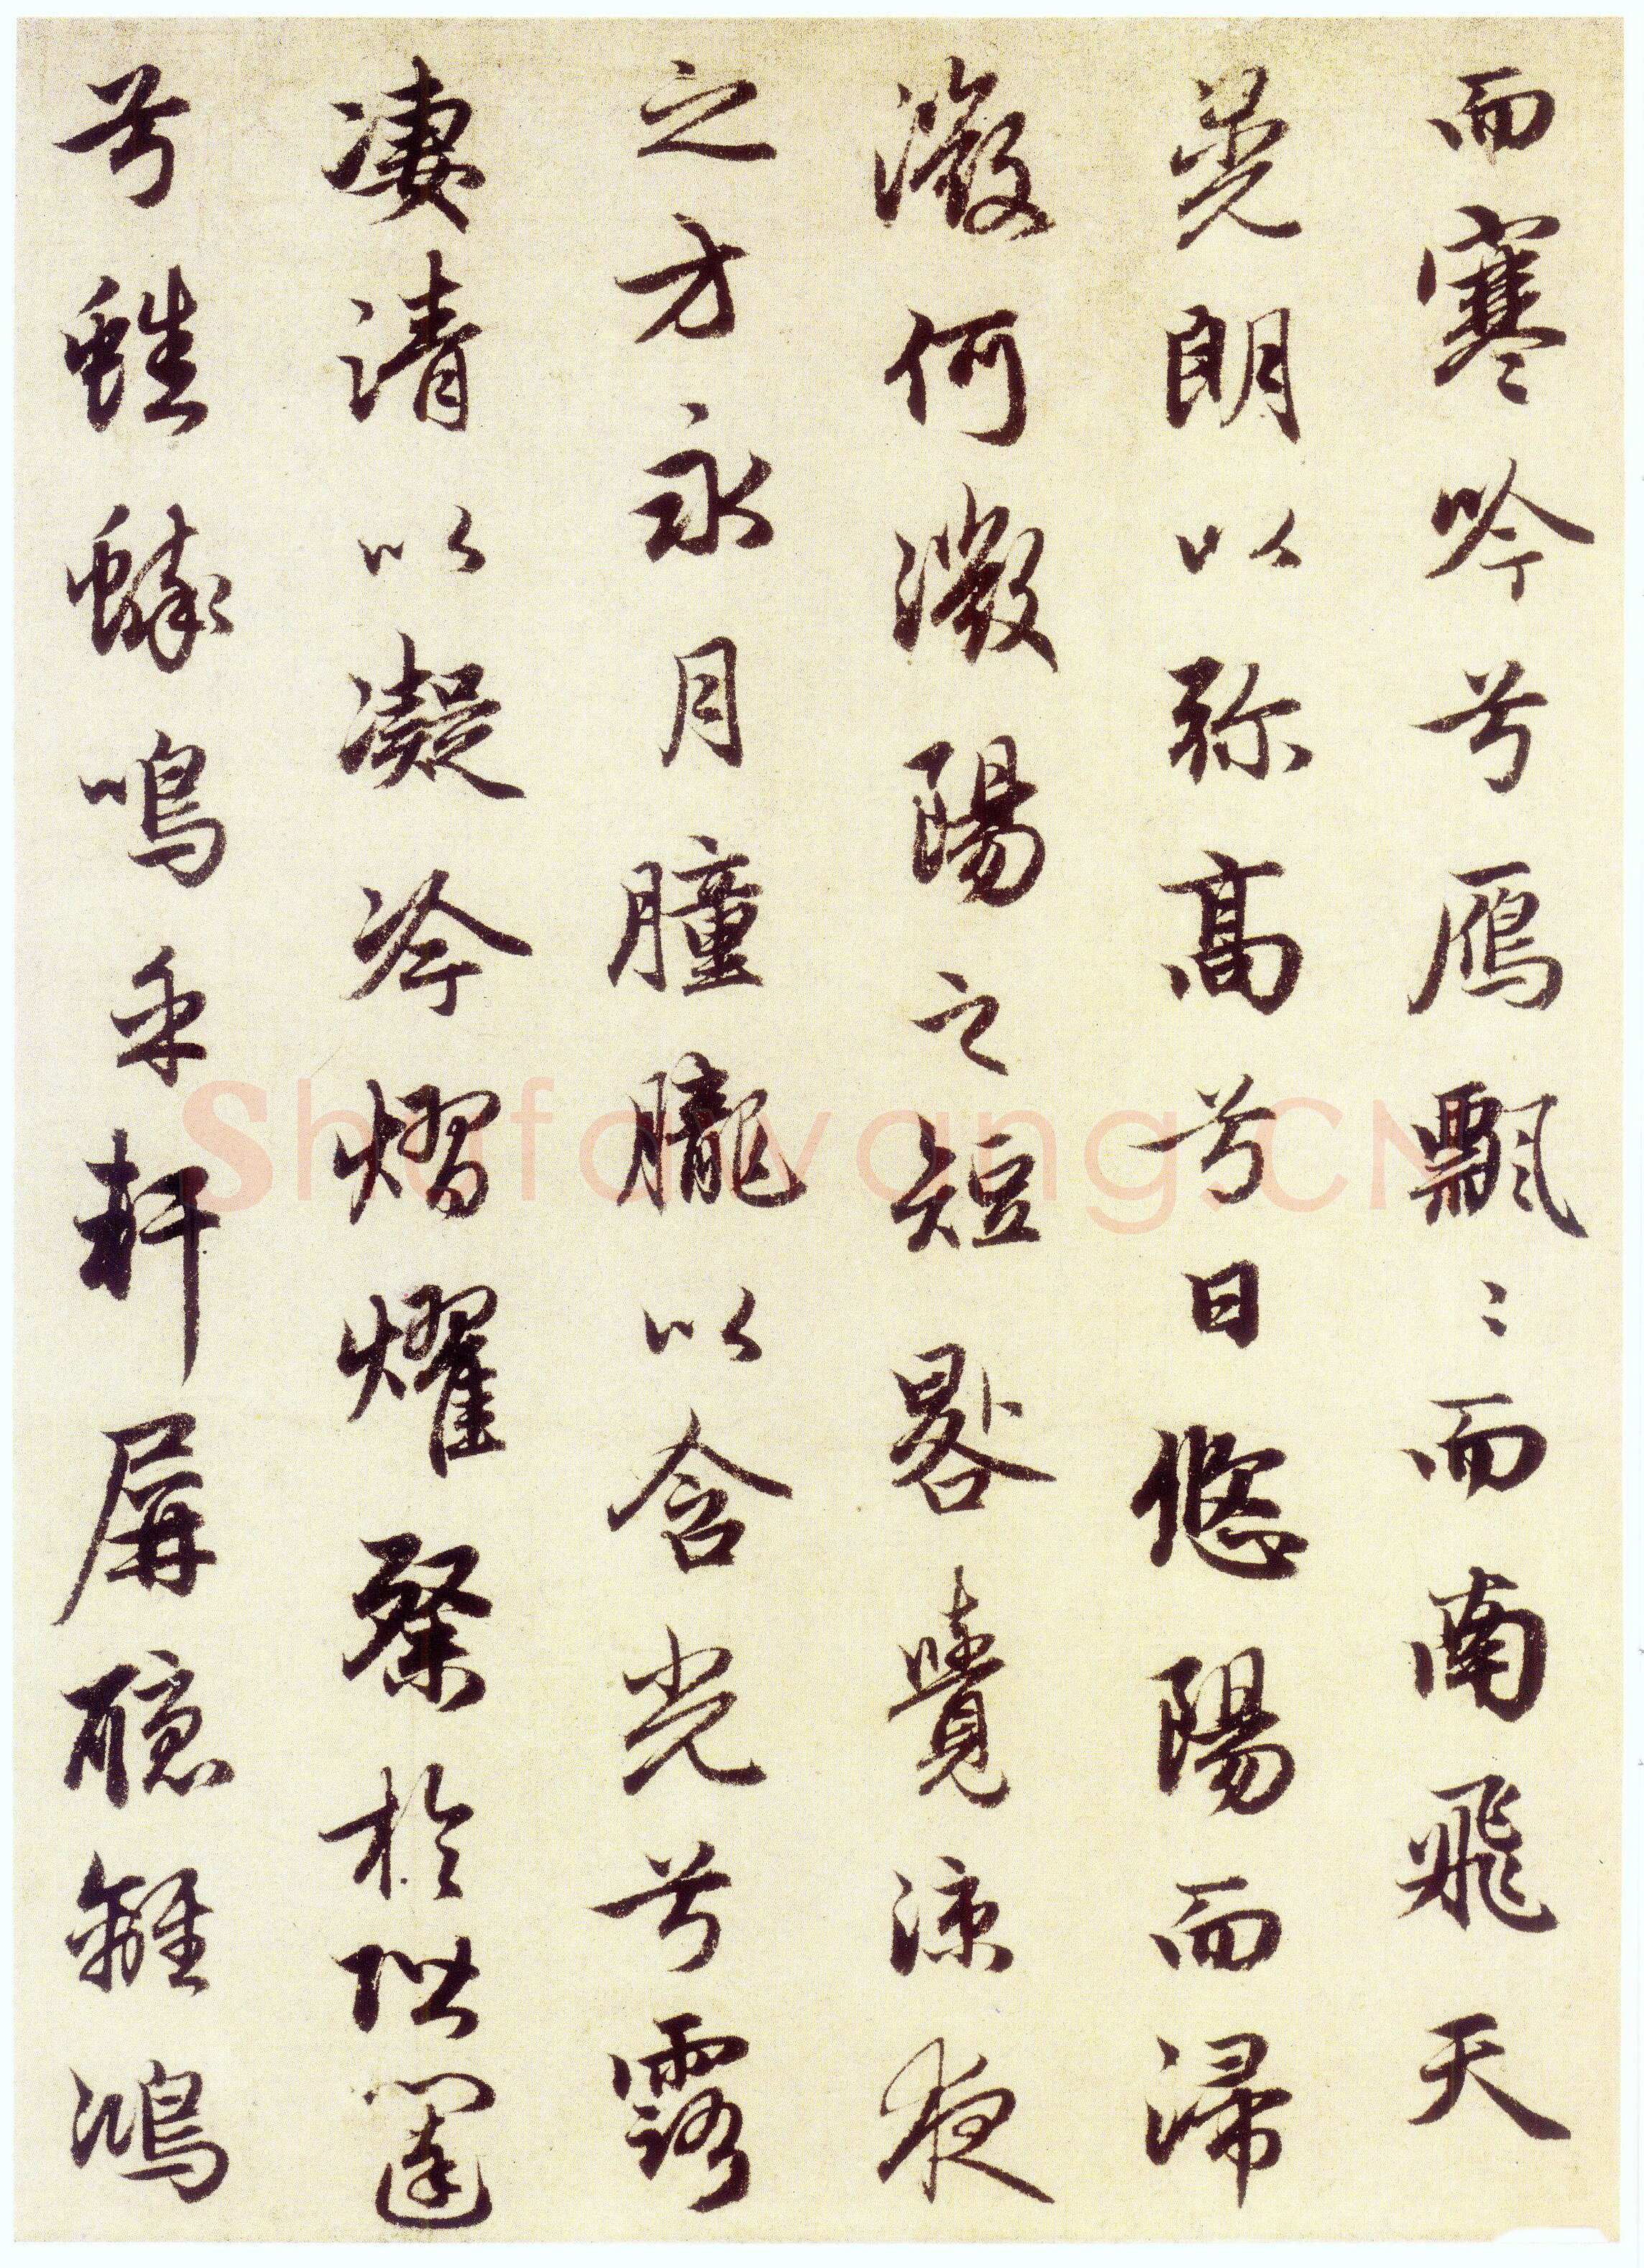 而寒吟兮鴈飄〻而南飛天
晃朗以弥高兮日悠陽而浸
微何微陽之短晷覺涼夜
之方永月朣朧以含光兮露
凄清以凝冷熠燿粲於階闥
兮蟋蟀鳴乎軒屏聽離鴻
Shufawang.CN